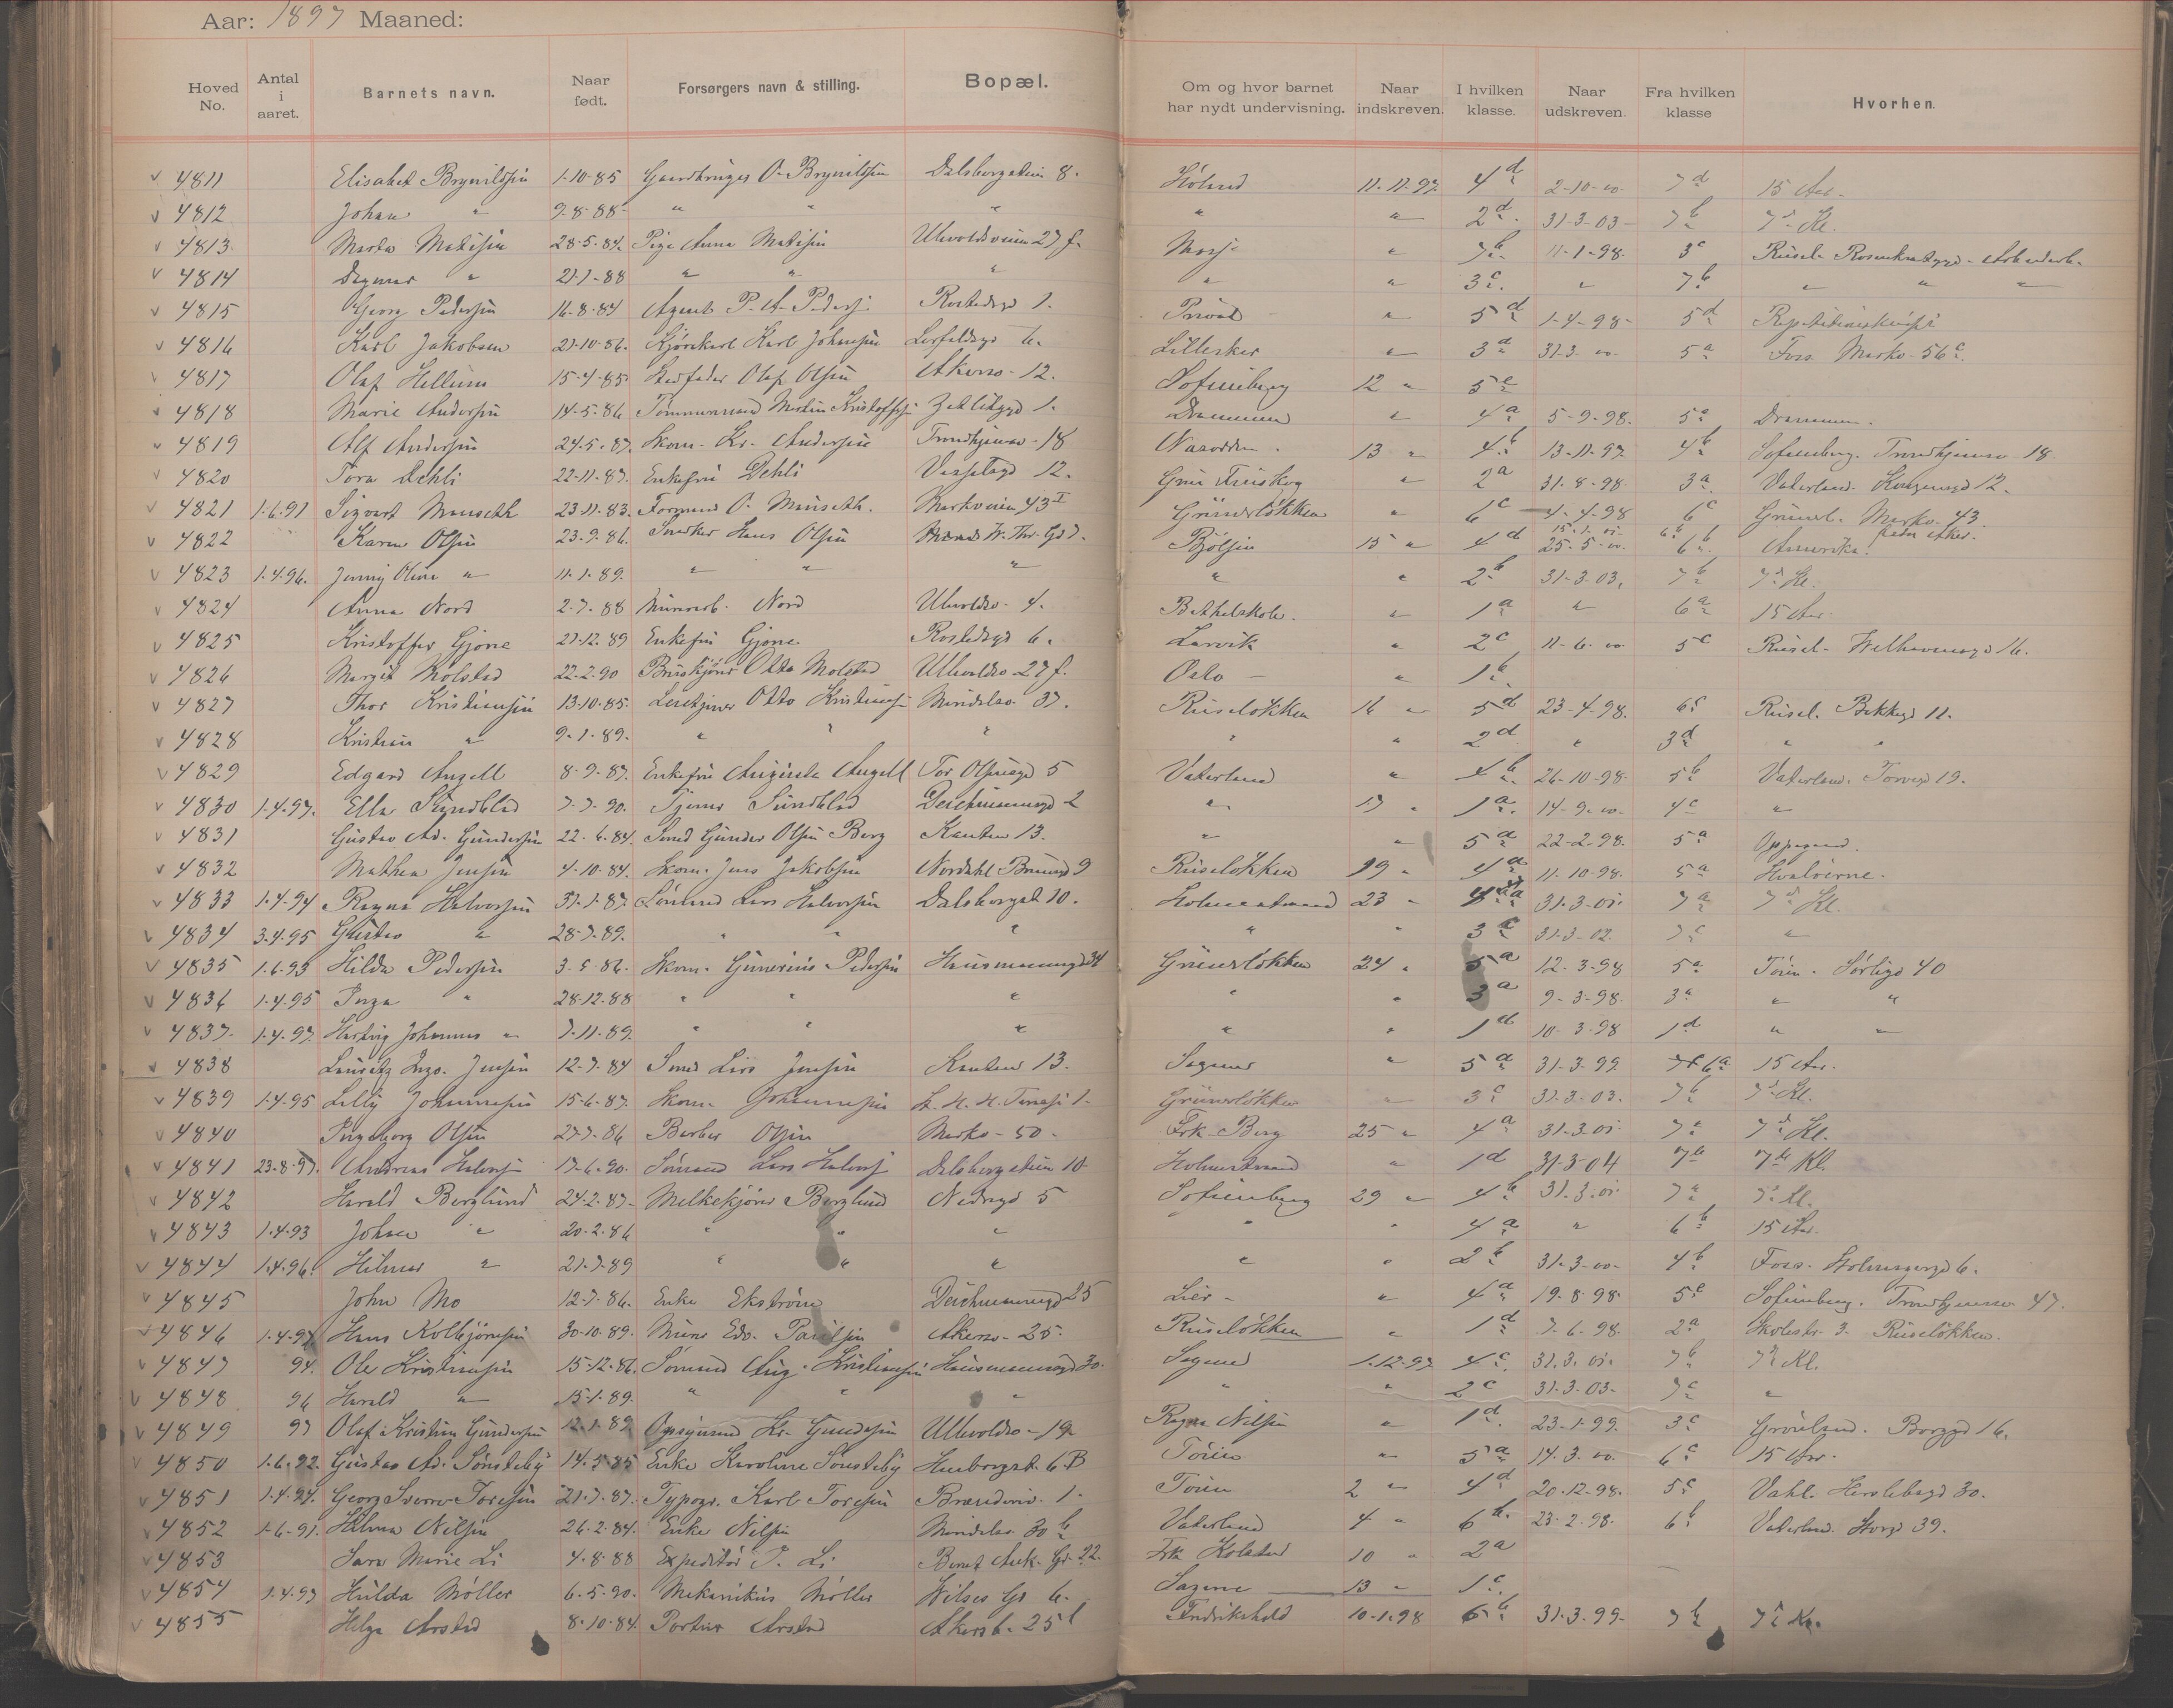 Aar: 1897 Maaned:
Hoved No. Antal i aaret. Barnets navn. Naar født. Forsørgers navn & stilling. Bopæl. Om og hvor barnet har nydt undervisning. Naar indskreven. I hvilken klasse. Naar udskreven. Fra hvilken klasse Hvorhen.
4811 Elisabet Brynildsen 1-10-85 O. Brynildsen Dalsbergstien 8. Høland 11-11-97. 4d 2-10-00. 7d 15 Aar.
4812 Johan " 9-8-88 " " " " " 2d. 31-3-03 7b 7d Kl.
4813 Marta Matisen 28-5-84. Pige Anna Matisen Ulevoldsveien 27 f. Moss " 7b. 11-1-98. 3c Rusel.
4814 Dagmar " 21-1-88 " " " " " 3c. " 7b " " "
4815 Georg Pedersen 16-8-84 Agent P. A. Peders. Rostedsgd 1. Privat " 5d 1-4-98 5d
4816 Karl Jakobsen 21-10-86. Kjørekarl Karl Johansen 6. Lilleaker " 3d 31.3.00. 5a Foss. Markv. 56c.
4817 Olaf Hellum 15-4-85 Stedfader Olaf Olsen Akersv. 12. Sofienberg 12 " 5c
4818 Marie Andersen 14-5-86 Tømmermand Martin Kristoffers. 1. Drammen " 4a 5-9-98. 5a Drammen.
4819 Alf Andersen 24-5-87. Skom. Kr. Andersen Trondhjemsv. 18 Næsodden. 13 " 4b. 13-11-97 4b Sofienberg. Trondhjemsv. 18.
4820 Tora Dehli 22-11-87. Enkefru Dehli 12. " 2a 31-8-98. 3a. Vaterland. Kongensgd 12.
4821 1.6.91 Sigvart Mauseth 23-11-83. Formand O. Mauseth. Markveien 43 I Grünerløkken " 6c 4-4-98 6c Grünerl. Markv. 43.
4822 Karen Olsen 23-9-86. Snedker Hans Olsen Bjølsen 15 " 4d 15.1.01. 25-5-00. 6b 6b. Amerika.
4823 1.4.96. Jenny Oline " 11-1-89. " " " " " 2b 31-3-03. 7b 7d Kl.
4824 Anna Nord 2-7-88 Murerarb. Nord Ulevoldsv. 4. Bethelskole. " 1a " 6a 15 Aar
4825 Kristoffer Gjone 21-12-89 Enkefru Gjone Rostedsgd 6. Larvik " 2c 11-6-00 5c Rusel. Welhavensgd 16.
4826 Margit Molstad 22-2-90 Otto Molstad Ullevoldsv. 27 f. Oslo " 1b.
4827 Thor Kristiansen 13-10-85. Otto Kristians. Maridalsv. 37. Ruseløkken 16 " 5d 23-4-98. 6c Rusel. Bekkegd 11.
4828 Kristian " 9-1-89. " " " " " 2d " 3d " "
4829 Edgard Angell 8-9-87. Enkefru Augusta Angell Tor Olsensgd 5 Vaterland " 4b. 26-10-98. 5b Vaterland. Torvgd 19.
4830 1.4.97. Ella Sundblad 7-7-90. Sundblad Deichmansgd 2 " 17 " 1a. 14-9-00. 4c "
4831 Gustav Ad. Gundersen 22-6-84. Smed Gunder Olsen Berg Kanten 13. " " 5a 22-2-98. 5a Oppegaard.
4832 Mathea Jensen 4-10-84. Skom. Jens Jakobsen Nordahl Brunsgd 9 Ruseløkken 19 " 4a 11-10-98. 5a Hvaløerne.
4833 1.4.94 Ragna Halvorsen 31-1-87. Sømand Lars Halvorsen Dalsbergst. 10. Holmestrand 23 " 4a 31-3-01. 7a 7d Kl.
4834 3.4.95 Gustav " 28-7-89. " " " " " 3c 31-3-02. 7c "
4835 1.6.93 Hilda Pedersen 3-5-86. Skom. Gunerius Pedersen Hausmannsgd Grünerløkken 24 " 5a 12-3-98 5a Tøien. Sørligd 40
4836 1.4.95 Inga " 28-12-88 " " " " " 3a 9-3-98. 3a " "
4837. 1.4.97 Hartvig Johannes " 7-11-89. " " " " " 1d 10-3-98 1d " "
4838 Lauritz Ingv. Jensen 12-7-84 Smed Lars Jensen Kanten 13. Sagene " 5a 31-3-99. 6a 15 Aar.
4839 1.4.95 Lilly Johannesen 15-6-87. Skom. Johannesen 1. Grünerløkken " 3c 31-3-03. 7b 7d Kl.
4840 Ingeborg Olsen 27-7-86 Barber Olsen Markv. 50. Frk. Berg 25 " 4a 31-3-01 7a 7d Kl.
4841 23-8-97. Andreas Halvors. 17-6-90. Sømand Lars Halvors. Dalsbergstien 10 Holmestrand " 1d 31-3-04 7b 7de Kl.
4842 Harald Berglund 24-2-87. Melkekjører Berglund Nedregd 5 Sofienberg 29 " 4b 31.3.01 7a 7d Kl.
4843 1.4.93 Johan " 20-2-86 " " " " " 4a " 6b 15 Aar.
4844 1.4.96. Hilmar " 21-7-89 " " " " " 2b 31-3-00. 4b Foss. 6.
4845 John Mo 12-7-86. Enke Ekstrøm Deichmansgd 25 Lier " 4a 19-8-98. 5c Sofienberg. Trondhjemsv. 47.
4846 1.4.97 Hans Kolbjørnsen 30-10-89. Murer Edv. Paulsen Akersv. 25. Ruseløkken " 1d 7-6-98. 2a Skolestr. 3. Ruseløkken.
4847 94. Ole Kristiansen 15-12-86. Sømand Aug. Kristiansen Hausmannsgd 30. Sagene 1.12.97 4c. 31.3.01. 7b 7d Kl.
4848 96 Harald " 15-1-89. " " " " " 2c 31-3-03. 7c "
4849 97 Olaf Kristian Gundersen 12-1-89. Opsynsmd Kr. Gundersen Ullevoldsv. 19. Ragna Nilsen " 1d. 23-1-99. 3c Grønland. Borggd 16.
4850 1.6.92. Gustav Ad. Sønsteby 14-5-85 Enke Karoline Sønsteby 6 B Tøien " 5a 14.3.00. 6c 15 Aar.
4851 1.4.94. Georg Sverre Toresen 21-7-87. Typogr. Karl Toresen 1. Tøien 2 " 4d 20-12-98. 5c Vahl. Herslebsgd 30.
4852 1.6.91. Hilma Nilsen 26-2-84. Enke Nilsen Maridalsv. 30b Vaterland 4 " 6b. 23-2-98. 6b Vaterland. Storgd 39.
4853 Sara Marie Li 4-8-88 Expeditør P. Li 22. Frk. Kolstad 10 " 2a
4854 1.4.97 Hulda Møller 6-5-90. Mekanikus Møller Wilses Gd 6. Sagene 13 " 1c.
4855 Helga Arstad 8-10-84. Portier Arstad Akersb. 25b Fredrikshald 10-1-98 6b 31-3-99. 7b 7d Kl.